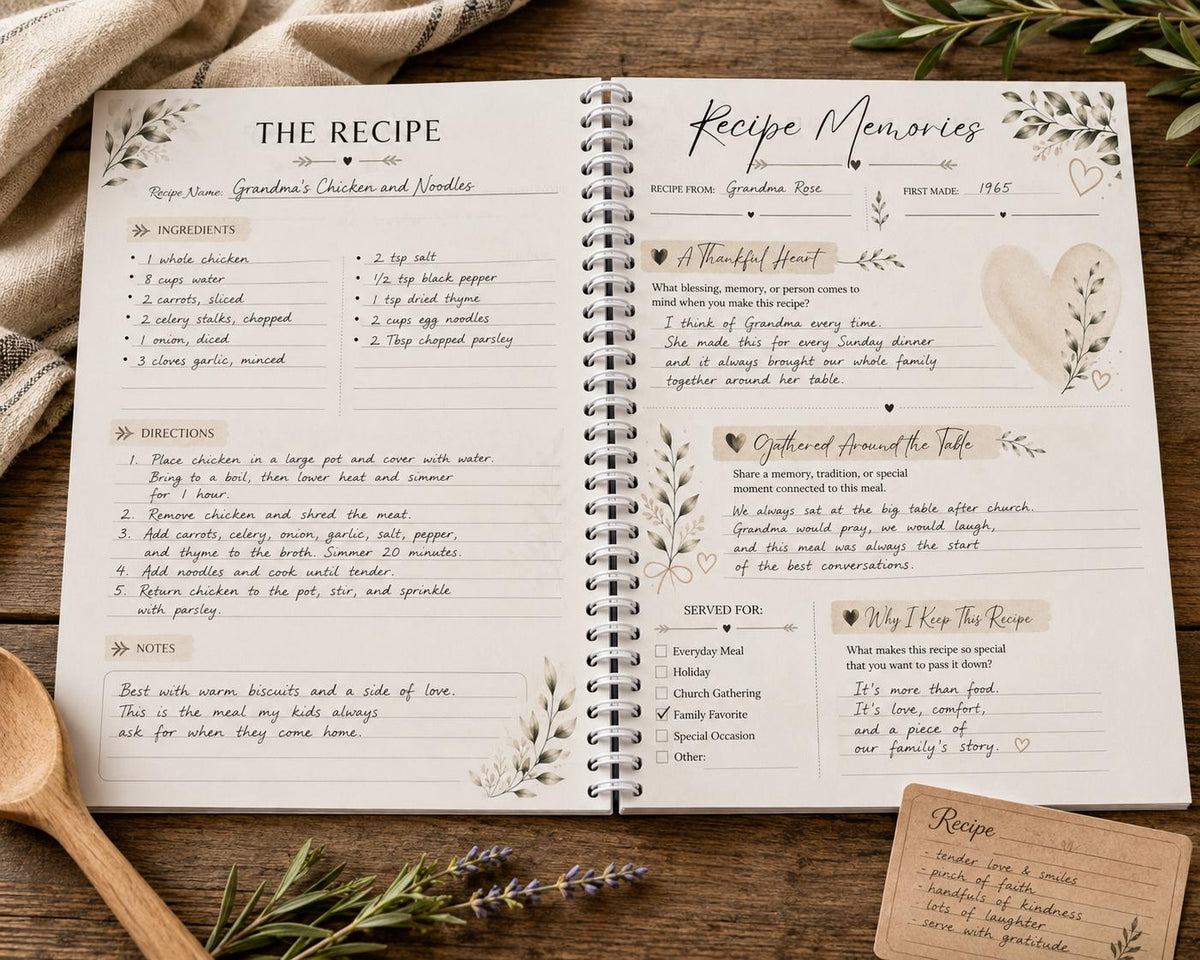 THE RECIPE
Recipe Name: Grandma's Chicken and Noodles
INGREDIENTS
• 1 whole chicken
• 8 cups water
• 2 carrots, sliced
• 2 celery stalks, chopped
• 1 onion, diced
• 3 cloves garlic, minced
• 2 tsp salt
• 1/2 tsp black pepper
• 1 tsp dried thyme
• 2 cups egg noodles
• 2 Tbsp chopped parsley
DIRECTIONS
1. Place chicken in a large pot and cover with water.
Bring to a boil, then lower heat and simmer
for 1 hour.
2. Remove chicken and shred the meat.
3. Add carrots, celery, onion, garlic, salt, pepper,
and thyme to the broth. Simmer 20 minutes.
4. Add noodles and cook until tender.
5. Return chicken to the pot, stir, and sprinkle
with parsley.
NOTES
Best with warm biscuits and a side of love.
This is the meal my kids always
ask for when they come home.
Recipe Memories
RECIPE FROM: Grandma Rose
FIRST MADE: 1965
A Thankful Heart
What blessing, memory, or person comes to
mind when you make this recipe?
I think of Grandma every time.
She made this for every Sunday dinner
and it always brought our whole family
together around her table.
Gathered Around the Table
Share a memory, tradition, or special
moment connected to this meal.
We always sat at the big table after church.
Grandma would pray, we would laugh,
and this meal was always the start
of the best conversations.
SERVED FOR:
Everyday Meal
Holiday
Church Gathering
Family Favorite
Special Occasion
Other:
Why I Keep This Recipe
What makes this recipe so special
that you want to pass it down?
It's more than food.
It's love, comfort,
and a piece of
our family's story.
Recipe
- tender love & smiles
- pinch of faith
- handfuls of kindness
- lots of laughter
- serve with gratitude